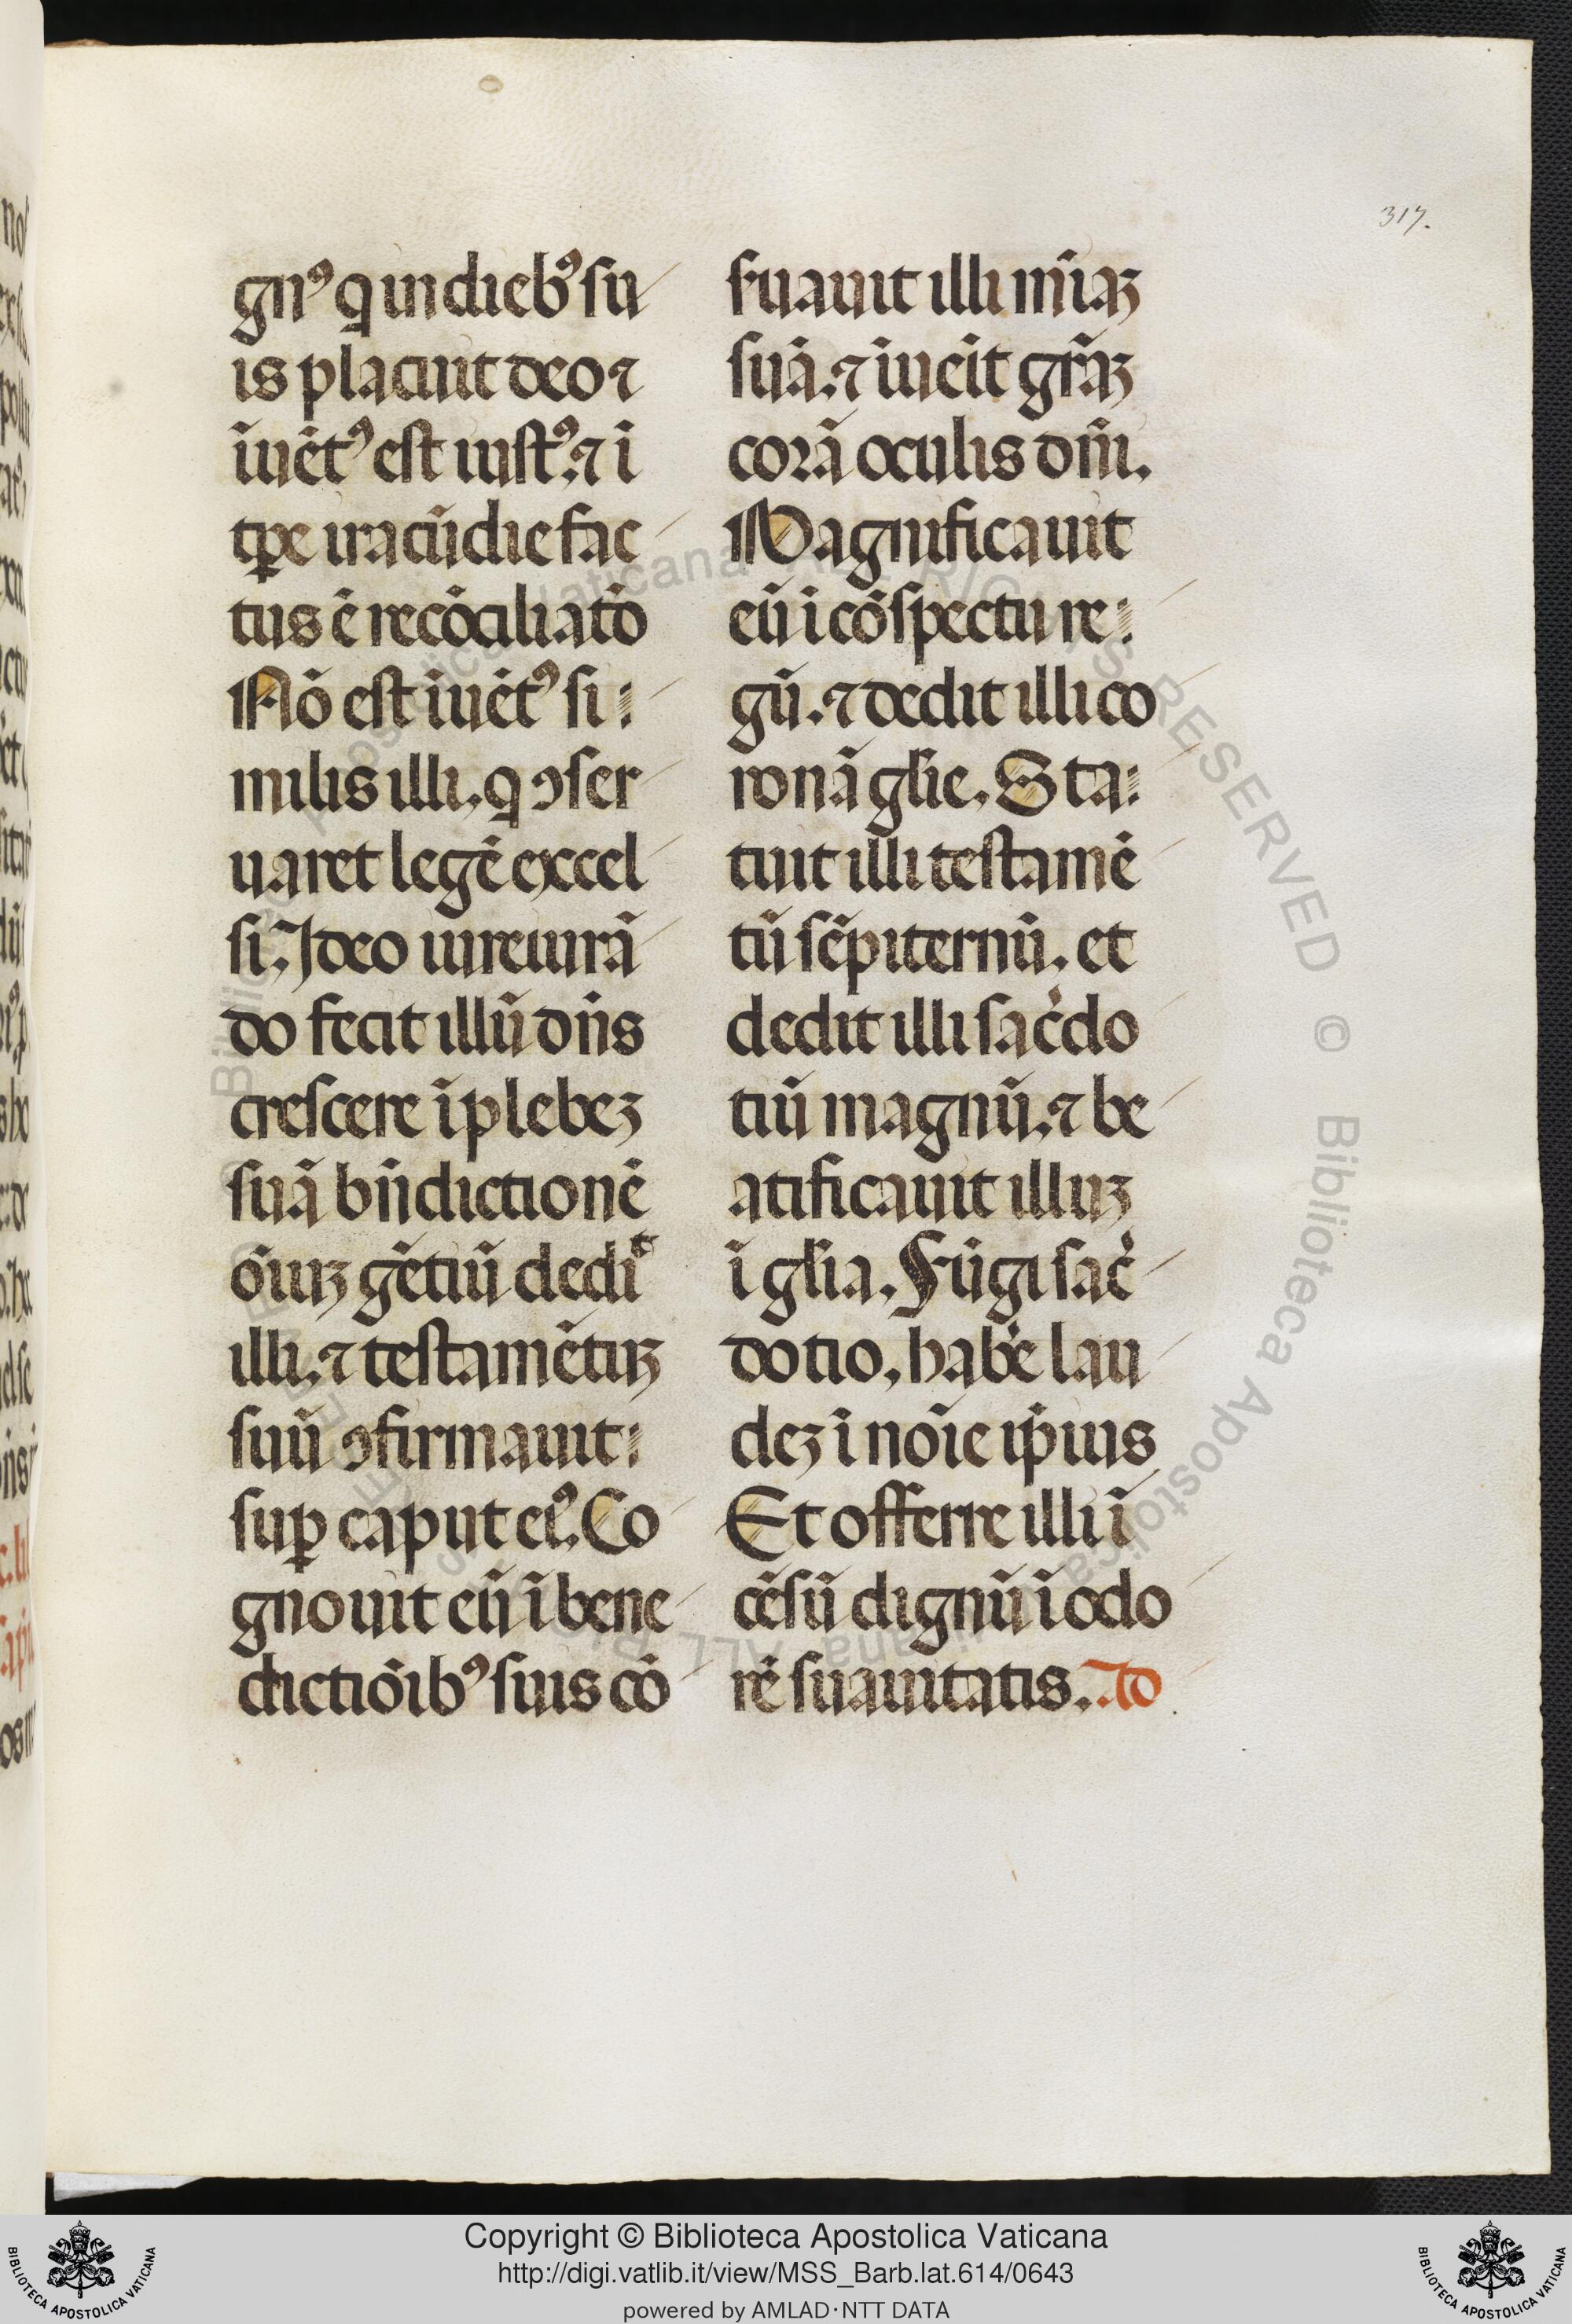 317.
gnꝰ q̇ in diebꝰ su
is placuit deo ⁊
īuētꝰ est iustꝰ. ⁊ ī
tꝑe iracūdie fac
tus ē recōciliatō
Nō est īuētꝰ si
milis illi. q̇ ꝯser
uaret legē excel
si. Ideo iureiurā
do fecit illū dn̄s
crescere ī plebeꝫ
suā bn̄dictionē
oīuꝫ gētiū dediͭ
illi. ⁊ testamētuꝫ
suū ꝯfirmauit
suꝑ caput eiꝰ. Co
gnouit eū ī bene
dictiōibꝰ suis cō
ẛuauit illi mīaꝫ
suā. ⁊ īueīt gr̄aꝫ
corā oculis dn̄i.
Magnificauit
eū ī cōspectu re
gū. ⁊ dedit illi co
ronā glīe. Sta
tuit illi testamē
tū sēpiternū. et
dedit illi sac̓do
tiū magnū. ⁊ be
atificauit illuꝫ
ī glīa. Fūgi sac̓
dotio, hab̓e lau
deꝫ ī noīe ip̄ius
Et offerre illi ī
cēsū dignū ī odo
rē suauitatis. Ad
Copyright © Biblioteca Apostolica Vaticana
http://digi.vatlib.it/view/MSS_Barb.lat.614/0643
powered by AMLAD·NTT DATA
BIBLIOTECA APOSTOLICA VATICANA
BIBLIOTECA APOSTOLICA VATICANA